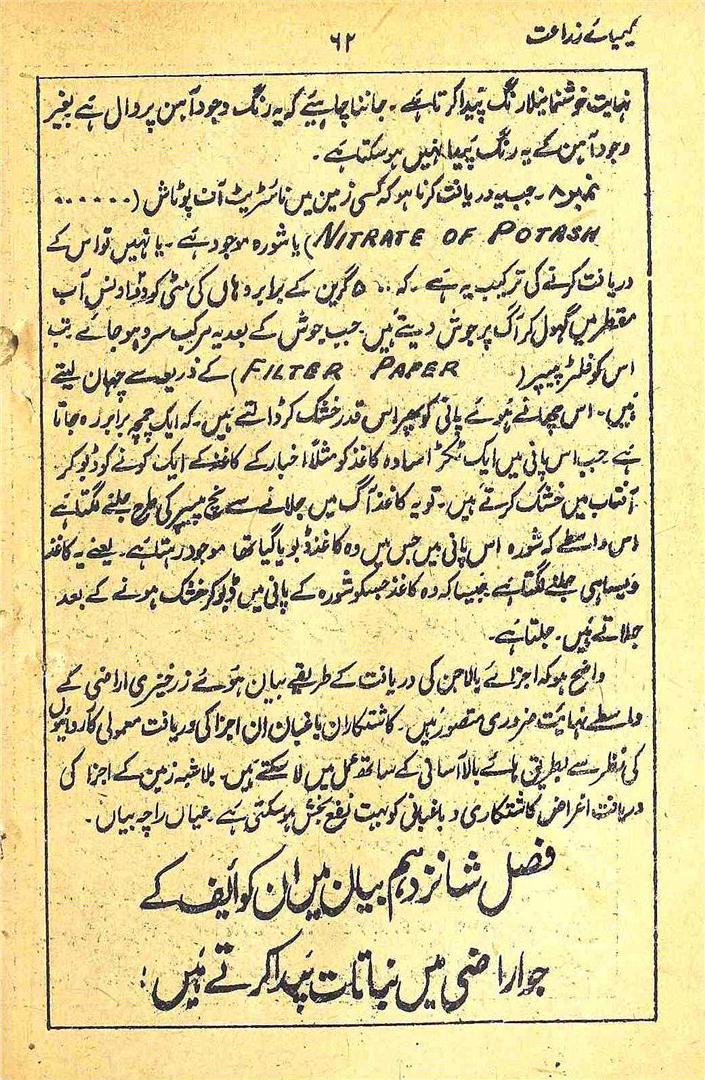 کیمیائے زراعت
۶۲
نہایت خوشنما نیلا رنگ پیدا کرتا ہے۔ جاننا چاہیئے کہ یہ رنگ وجود آہن پر دال ہے بغیر
وجود آہن کے یہ رنگ پیدا نہیں ہو سکتا ہے۔
نمبر ۸۔ جب یہ دریافت کرنا ہو کہ کسی زمین میں نائٹریٹ آف پوٹاش (......
NITRATE OF POTASH) یا شورہ موجود ہے۔ یا نہیں تو اس کے
دریافت کرنے کی ترکیب یہ ہے۔ کہ ۵۰۰ گرین کے برابر وہاں کی مٹی کو دو اونس آب
مقطر میں گھول کر آگ پر جوش دیتے ہیں۔ جب جوش کے بعد یہ مرکب سرد ہو جائے تب
اس کو فلٹر پیپر (FILTER PAPER) کے ذریعہ سے چھان لیتے
ہیں۔ اس چھانے ہوئے پانی کو پھر اس قدر خشک کر ڈالتے ہیں۔ کہ ایک چمچہ برابر رہ جاتا
ہے جب اس پانی میں ایک ٹکڑا سادہ کاغذ کو مثلاً اخبار کے کاغذ کے ایک کونے کو ڈبو کر
آفتاب میں خشک کرتے ہیں۔ تو یہ کاغذ آگ میں جلانے سے ٹچ پیپر کی طرح جلنے لگتا ہے
اس واسطے کہ شورہ اس پانی میں جس میں وہ کاغذ ڈبویا گیا تھا موجود رہتا ہے۔ یعنے یہ کاغذ
ویسا ہی جلنے لگتا ہے جیسا کہ وہ کاغذ جسکو شورہ کے پانی میں ڈبو کر خشک ہونے کے بعد
جلاتے ہیں۔ جلتا ہے۔
واضح ہو کہ اجزائے بالا جن کی دریافت کے طریقے بیان ہوئے زرخیزی اراضی کے
واسطے نہایت ضروری متصور ہیں۔ کاشتکاران باغبان ان اجزا کی دریافت معمولی کارروائیوں
کی نظر سے بطریق ہائے بالا آسانی کے ساتھ عمل میں لا سکتے ہیں۔ بلاشبہ زمین کے اجزا کی
دریافت اغراض کاشتکاری و باغبانی کو بہت نفع بخش ہو سکتی ہے۔ عیاں را چہ بیاں۔
فصل شانزدہم بیان میں ان کوائف کے
جو اراضی میں نباتات پیدا کرتے ہیں: